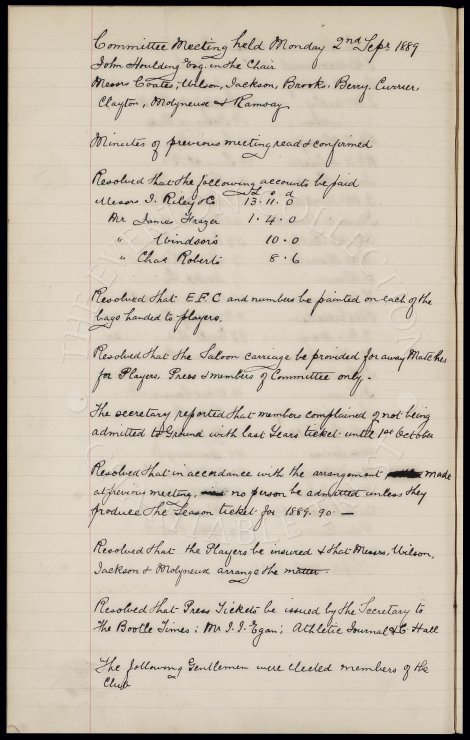 Committee Meeting held Monday 2nd Sepr 1889
John Houlding Esq. in the Chair
Messrs Coates, Wilson, Jackson, Brooks, Berry, Currier,
Clayton, Molyneux & Ramsay
Minutes of previous meeting read & confirmed
Resolved that the following accounts be paid
£ s d
Messrs J. Riley & Co 13.11.0
Mr James Frazer 1.4.0
" Windsors 10.0
" Chas Roberts 8.6
Resolved that E.F.C and numbers be painted on each of the
bags handed to players.
Resolved that the Saloon carriage be provided for away Matches
for Players, Press & members of Committee only.
The secretary reported that members complained of not being
admitted to Ground with last Years ticket until 1st October
Resolved that in accordance with the arrangement made
at previous meeting, no person be admitted unless they
produce the Season ticket for 1889-90 —
Resolved that the Players be insured & that Messrs, Wilson,
Jackson & Molyneux arrange the matter.
Resolved that Press Tickets be issued by the Secretary to
The Bootle Times; Mr J. J. Egan; Athletic Journal & C. Hall
The following Gentlemen were elected members of the
Club
THE EVERTON COLLECTION